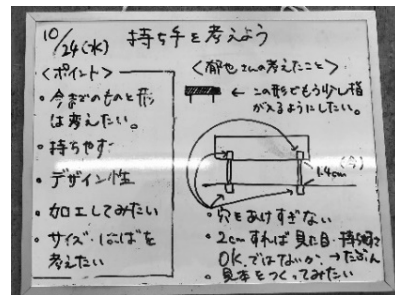 10/24(水) 持ち手を考えよう
<ポイント>
・今までのものと形
は考えたい。
・持ちやす
・デザイン性
・加工してみたい
・サイズ・はばを
考えたい
<郁也さんの考えたこと>
← この形でもう少し指
が入るようにしたい。
(今)
1.4cm
・穴をあけすぎない
・2cmすれば見た目・持ち
OK.ではないか。→たぶん
・見本をつくってみたい